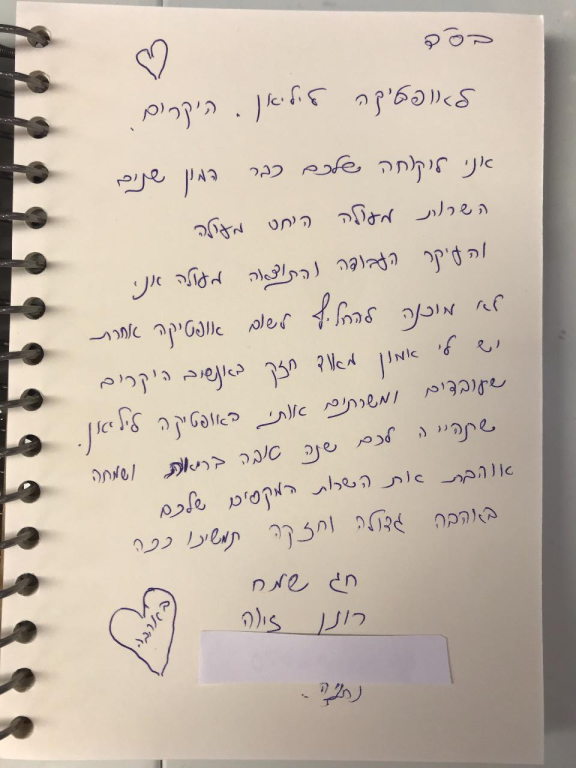 בס"ד
לאופטיקה ליליאן. היקרים.
אני לקוחה שלכם כבר המון שנים
השרות מעולה היחס מעולה
והעיקר העבודה והתוצאה מעולה אני
לא מוכנה להחליף לשום אופטיקה אחרת
יש לי אמון מאוד חזק באנשים היקרים
שעובדים ומשרתים אותי באופטיקה ליליאן.
שתהייה לכם שנה טובה בריאות ושמחה
אוהבת את השרות המקסים שלכם
באהבה גדולה וחזקה תמשיכו ככה
חג שמח
רונן זיוה
באהבה
נתניה.